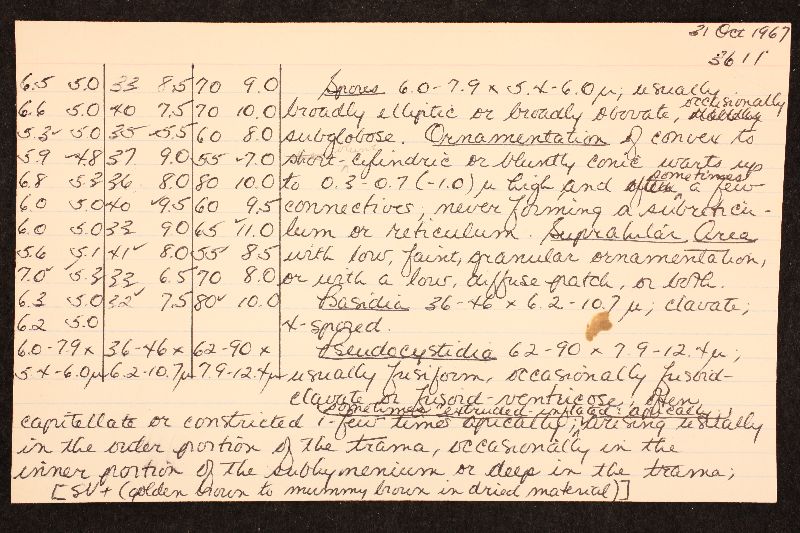 31 Oct 1967
3611
6.5 5.0 33 8.5 70 9.0 Spores 6.0-7.9 x 5.4-6.0 µ; usually
6.6 5.0 40 7.5 70 10.0 broadly elliptic or broadly obovate, occasionally
5.3 5.0 35 5.5 60 8.0 subglobose. Ornamentation of convex to
5.9 4.8 37 9.0 55 7.0 short-cylindric or bluntly conic warts up
6.8 5.3 36 8.0 80 10.0 to 0.3-0.7 (-1.0) µ high and sometimes a few
6.0 5.0 40 9.5 60 9.5 connectives, never forming a subreticu-
6.0 5.0 33 9.0 65 11.0 lum or reticulum. Suprahilar Area
5.6 5.1 41 8.0 55 8.5 with low, faint, granular ornamentation,
7.0 5.3 33 6.5 70 8.0 or with a low, diffuse patch, or both.
6.3 5.0 32 7.5 80 10.0 Basidia 36-46 x 6.2-10.7 µ; clavate;
6.2 5.0 4-spored.
6.0-7.9 x 36-46 x 62-90 x Pseudocystidia 62-90 x 7.9-12.4 µ;
5.4-6.0µ 6.2-10.7µ 7.9-12.4µ usually fusiform, occasionally fusoid-
clavate or fusoid-ventricose, often
sometimes extruded-inflated apically;
capitellate or constricted 1-few times apically; arising usually
in the outer portion of the trama, occasionally in the
inner portion of the subhymenium or deep in the trama;
[SV+ (golden brown to mummy brown in dried material)]